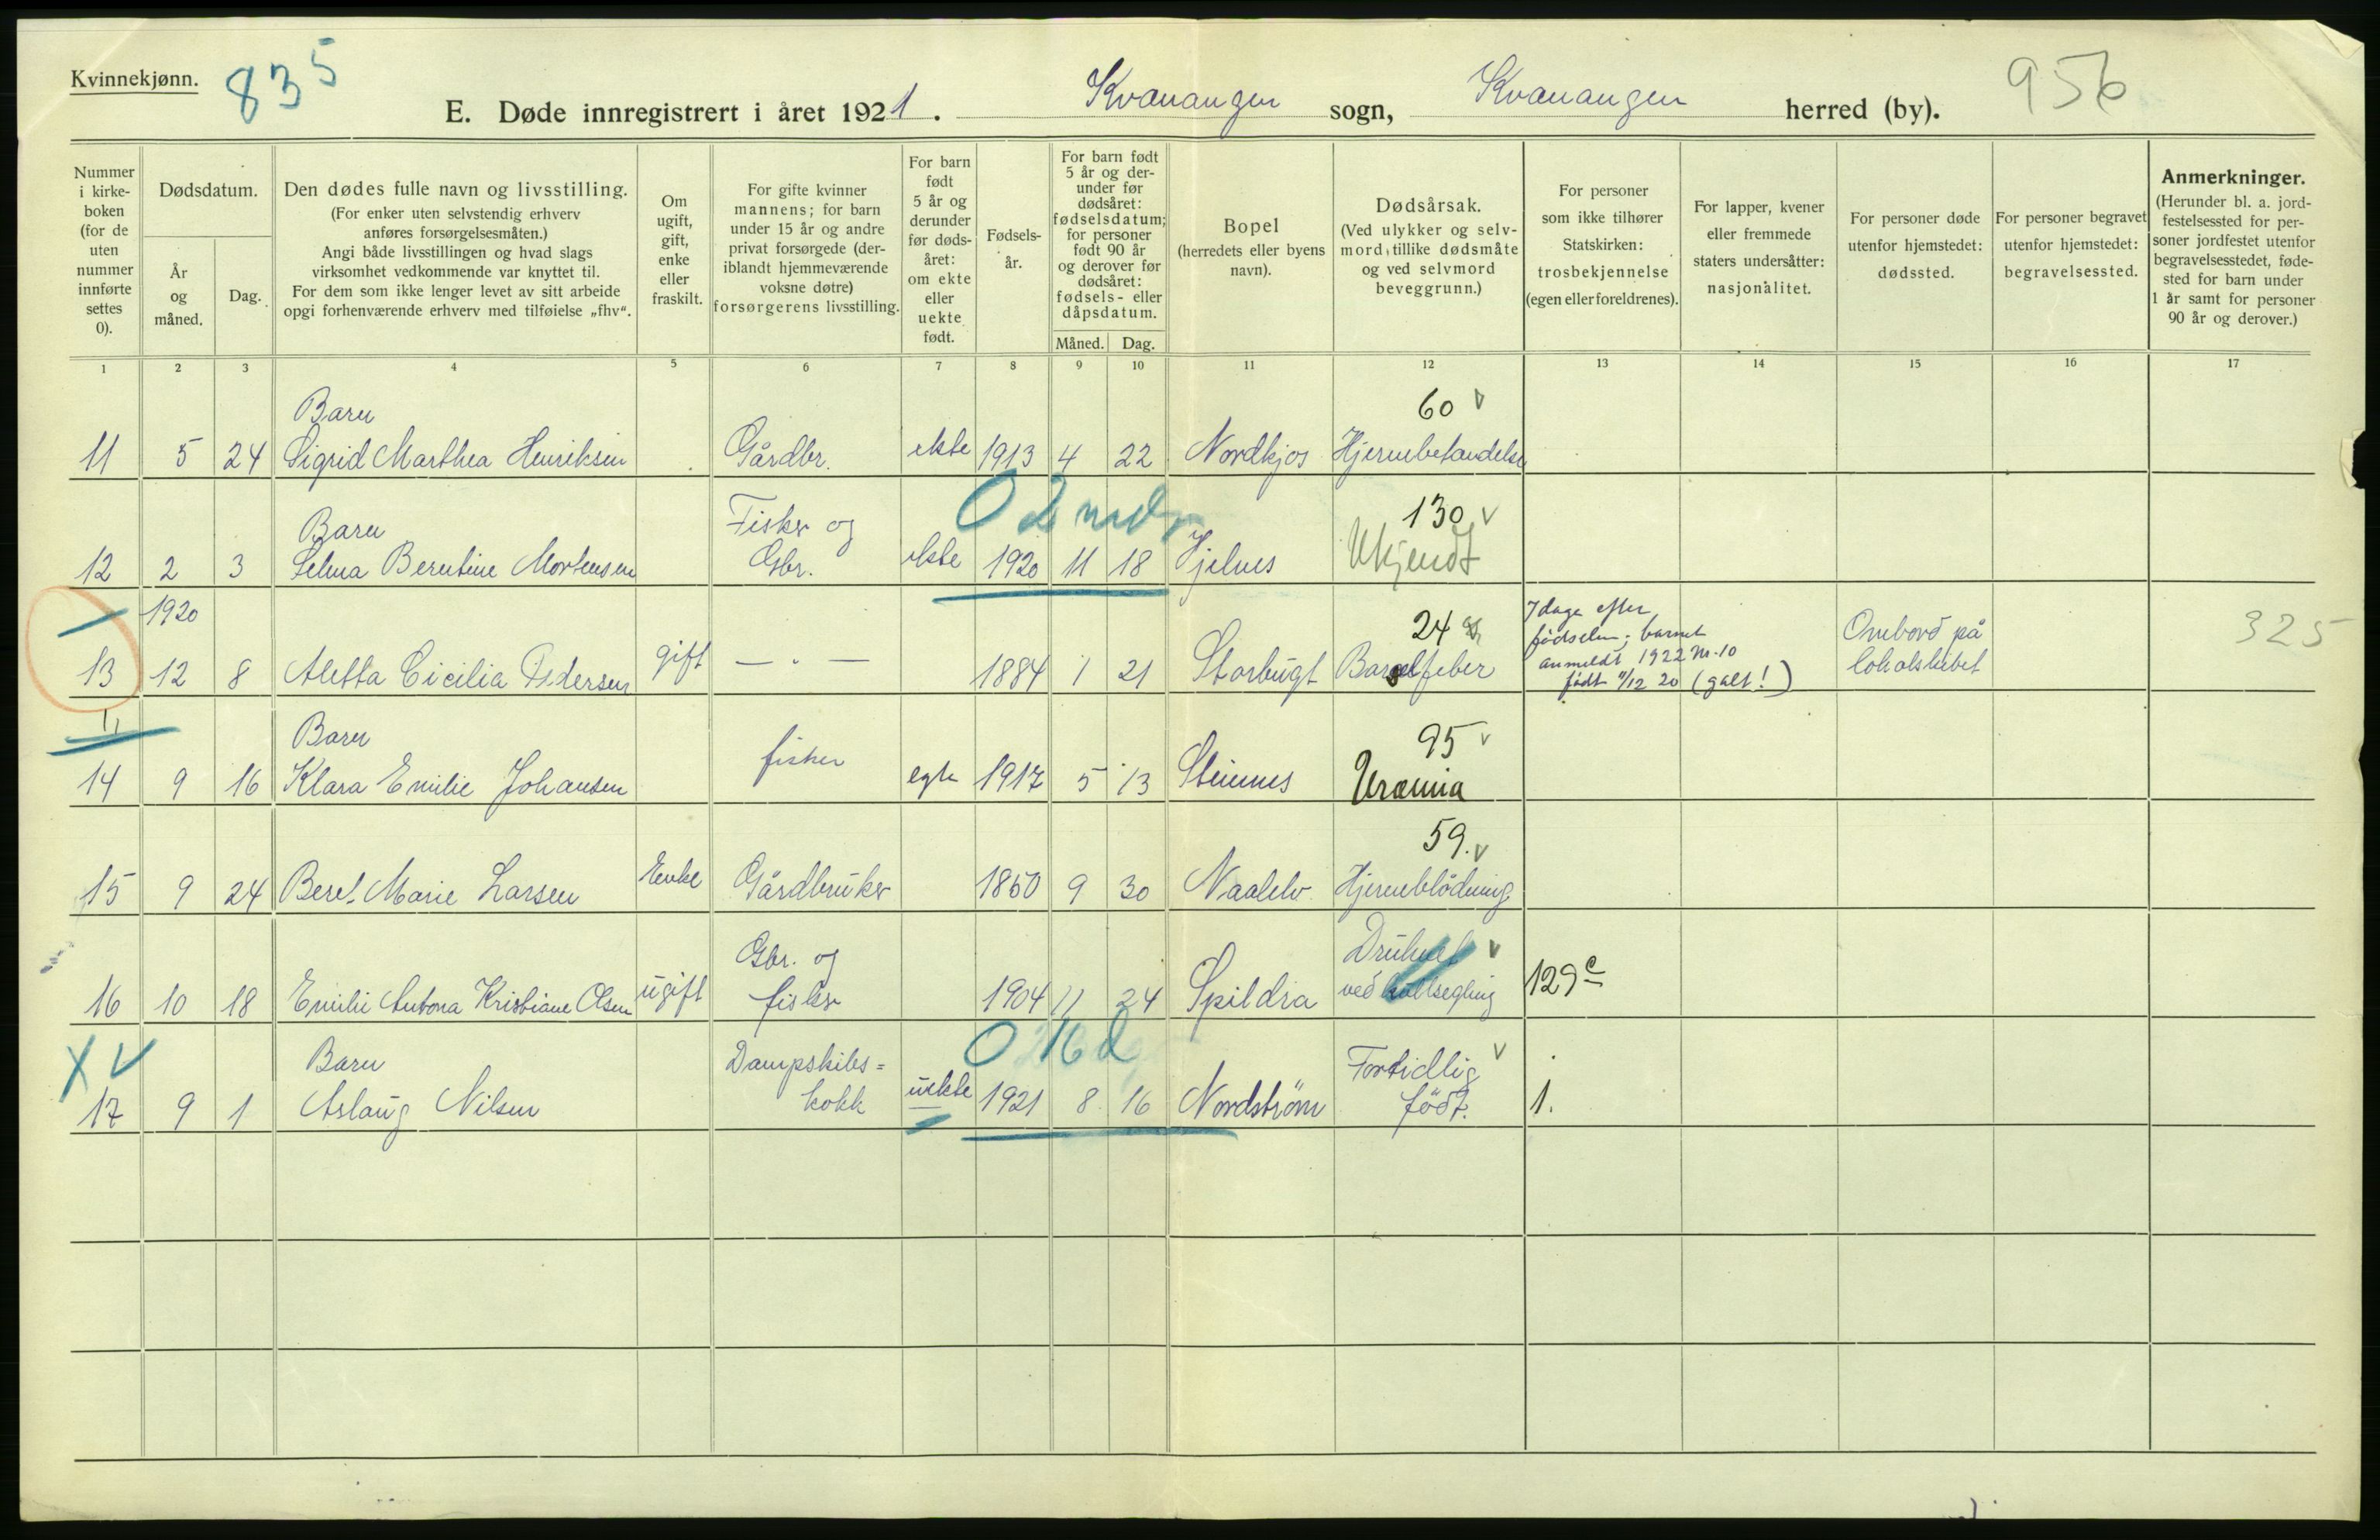 Kvinnekjønn.
835
E. Døde innregistrert i året 1921. Kvænangen sogn, Kvænangen herred (by).
956
Nummer i kirke-boken (for de uten nummer innførte settes 0).
Dødsdatum.
År og måned.
Dag.
Den dødes fulle navn og livsstilling.
(For enker uten selvstendig erhverv anføres forsørgelsesmåten.)
Angi både livsstillingen og hvad slags virksomhet vedkommende var knyttet til.
For dem som ikke lenger levet av sitt arbeide opgi forhenværende erhverv med tilføielse „fhv“.
Om ugift, gift, enke eller fraskilt.
For gifte kvinner mannens; for barn under 15 år og andre privat forsørgede (der-iblandt hjemmeværende voksne døtre) forsørgerens livsstilling.
For barn født 5 år og derunder før døds-året: om ekte eller uekte født.
Fødsels-år.
For barn født 5 år og der-under før dødsåret: fødselsdatum; for personer født 90 år og derover før dødsåret: fødsels- eller dåpsdatum.
Måned.
Dag.
Bopel (herredets eller byens navn).
Dødsårsak.
(Ved ulykker og selv-mord, tillike dødsmåte og ved selvmord beveggrunn.)
For personer som ikke tilhører Statskirken: trosbekjennelse (egen eller foreldrenes).
For lapper, kvener eller fremmede staters undersåtter: nasjonalitet.
For personer døde utenfor hjemstedet: dødssted.
For personer begravet utenfor hjemstedet: begravelsessted.
Anmerkninger.
(Herunder bl. a. jord-festelsessted for per-soner jordfestet utenfor begravelsesstedet, føde-sted for barn under 1 år samt for personer 90 år og derover.)
1 2 3 4 5 6 7 8 9 10 11 12 13 14 15 16 17
Barn 60 v
11 5 24 Sigrid Marthea Henriksen Gårdbr. ekte 1913 4 22 Nordkjos Hjernebetændelse
0 2 mdr
Barn Fisker og 130 v
12 2 3 Selma Berntine Mortensen Gbr. ekte 1920 11 18 Hjelnes Ukjendt
1920 24
7 dage efter
fødselen; barnet
anmeldt 1922 nr. 10
født 11/12 20 (galt!)
13 12 8 Aletta Cicilia Pedersen gift — " — 1884 1 21 Storbugt Barselfeber
Ombord på
lokalskibet
325
Barn fisker 95 v
14 9 16 Klara Emilie Johansen egte 1917 5 13 Steinnes Uræmia
59. v
15 9 24 Beret Marie Larsen Enke Gårdbruker 1850 9 30 Naalelv Hjerneblødning
Gbr. og Druknet v
16 10 18 Emilie Antona Kristiane Olsen ugift fisker 1904 11 24 Spildra ved kullsegling 129c
0 16 d
X v Barn Dampskibs= Fortidlig v
17 9 1 Aslaug Nilsen kokk uekte 1921 8 16 Nordstrøm født. 1.